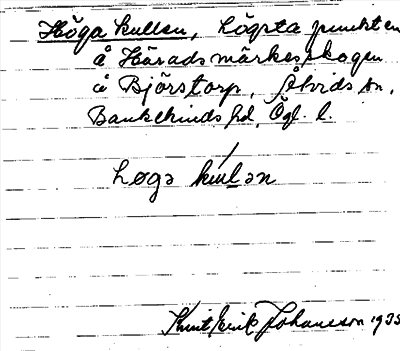 Höga kullen, högsta punkten
å Häradsmärkesskogen
å Björstorp, Åtvids sn,
Bankekinds hd, Ögl. l.
høgə kulən
Knut Erik Johansson 1935